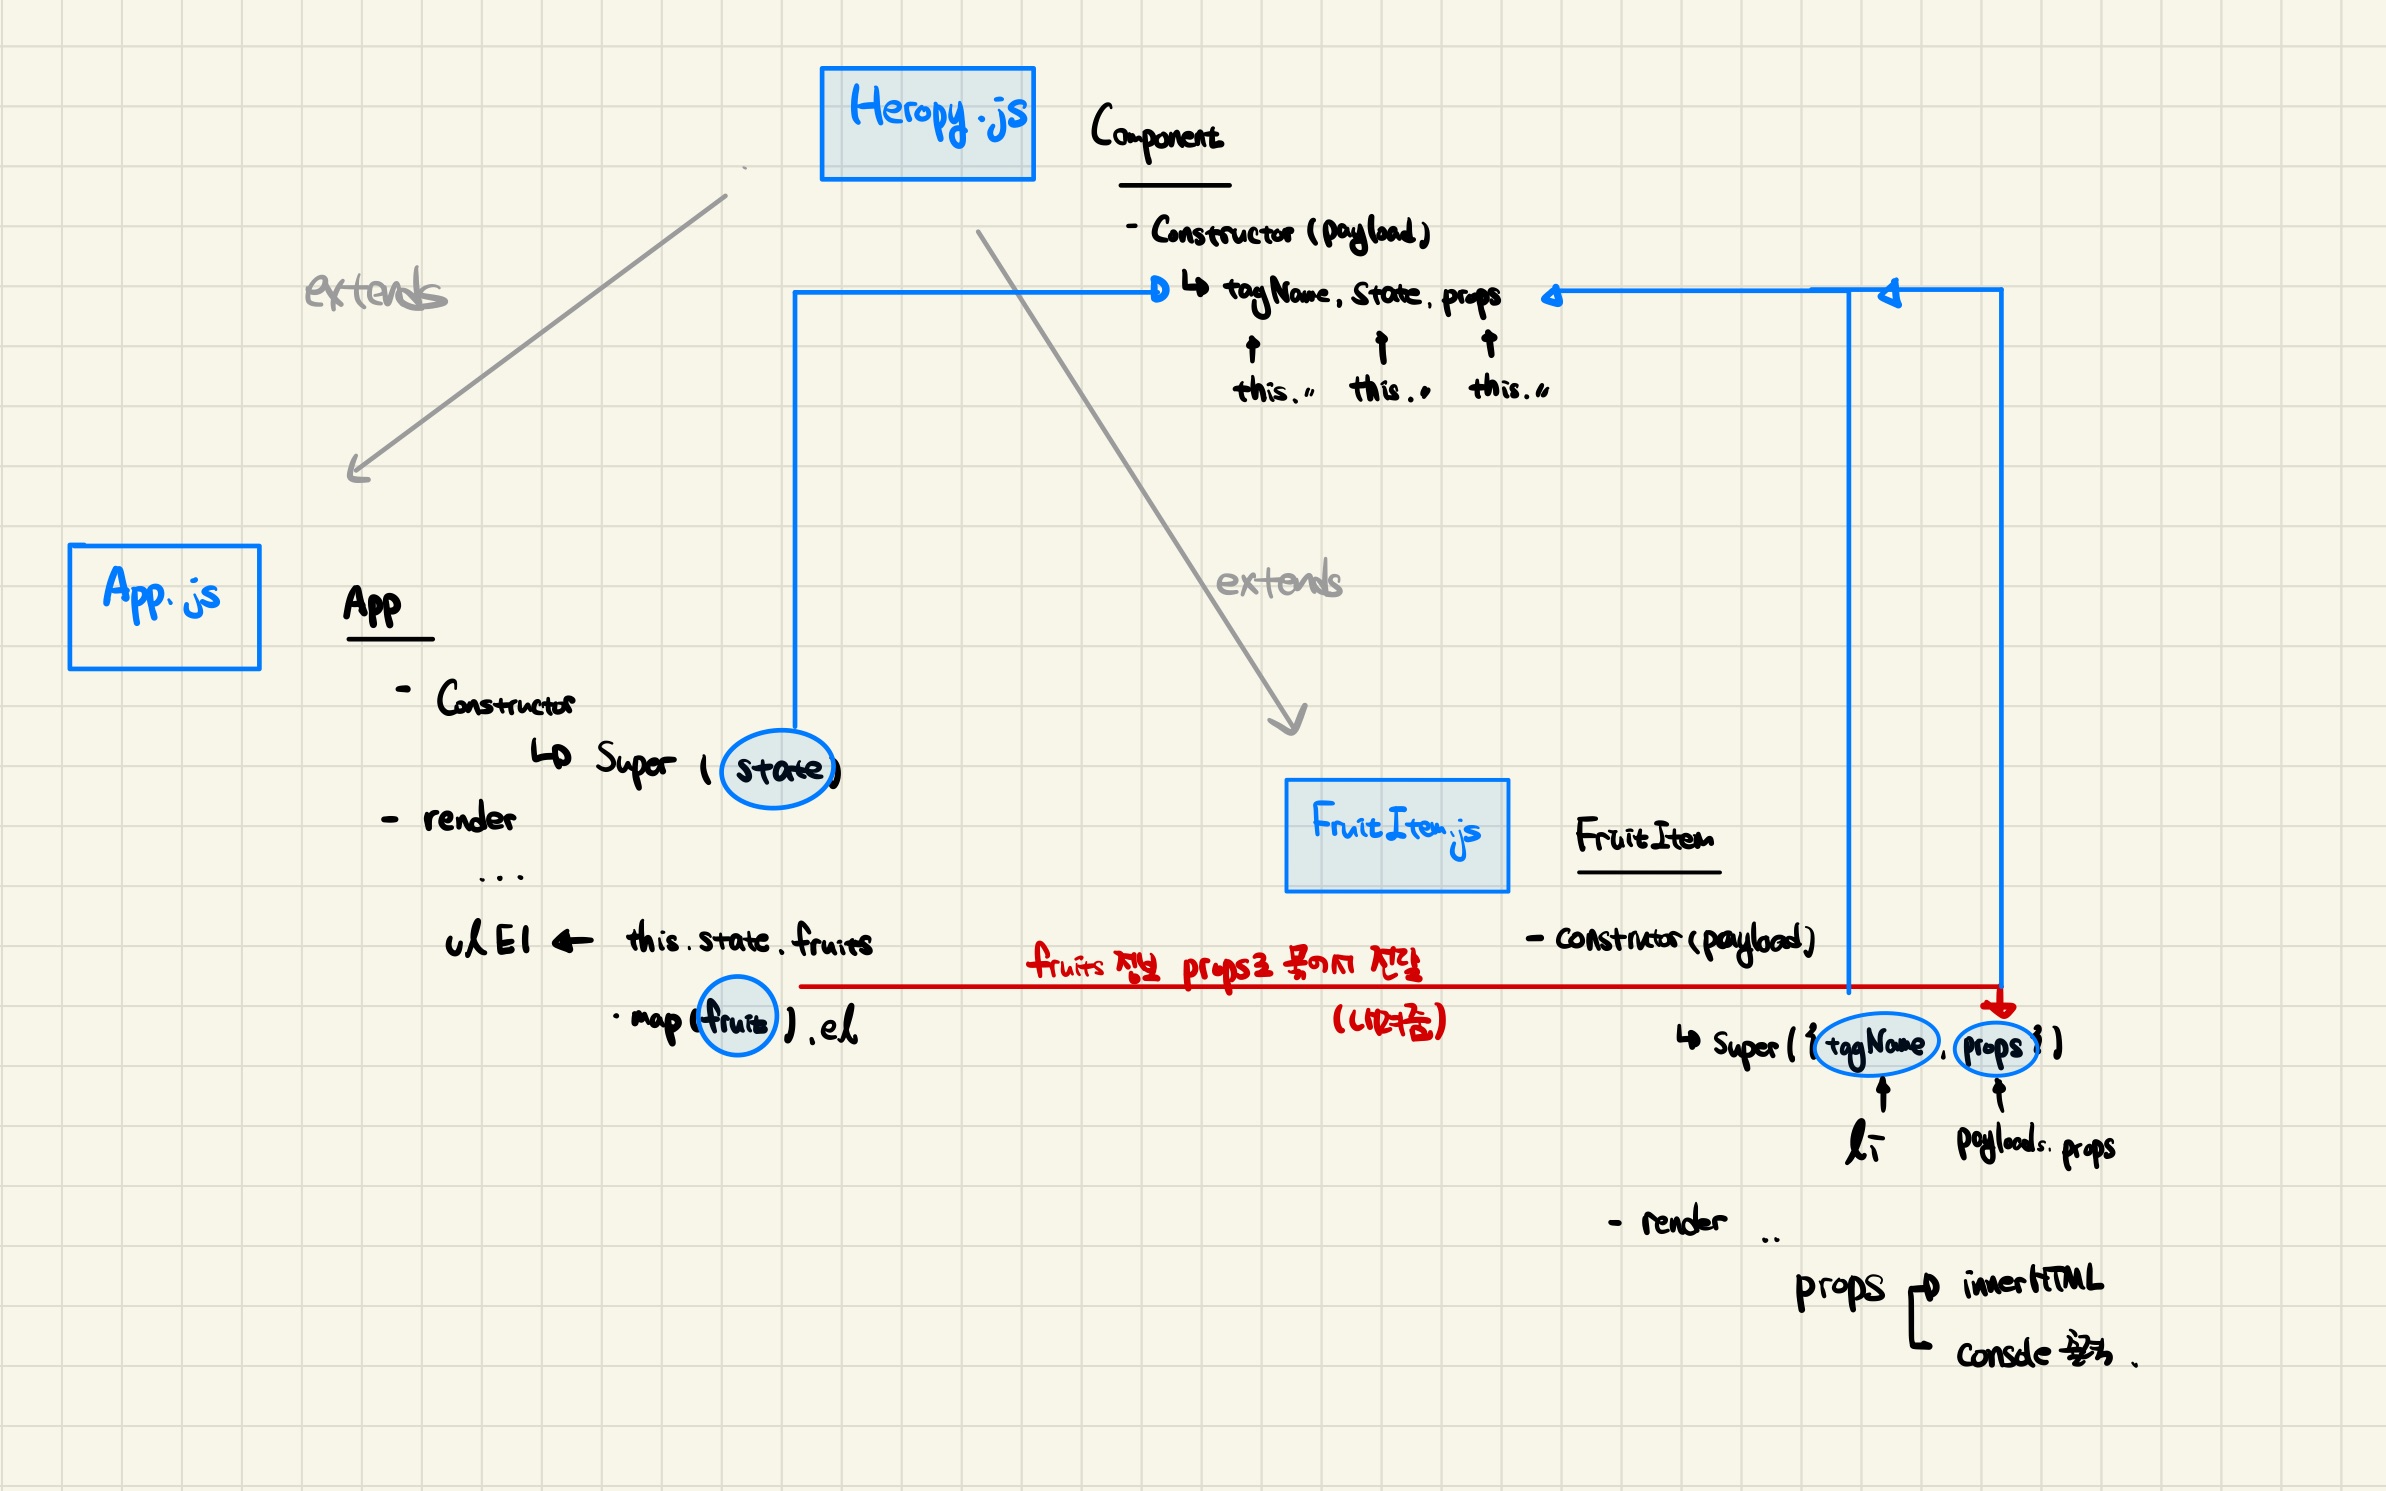 Heropy.js
Component
- Constructor (payload)
↳ tagName, state, props
this.〃 this.〃 this.〃
extends
extends
App.js
App
- Constructor
↳ Super (state)
- render
...
ulEl ← this.state.fruits
.map(fruit).el
FruitItem.js
FruitItem
- constructor (payload)
fruits props로 묶어서 전달
↳ Super ({tagName, props})
li payloads.props
- render ..
props innerHTML
console 출력.